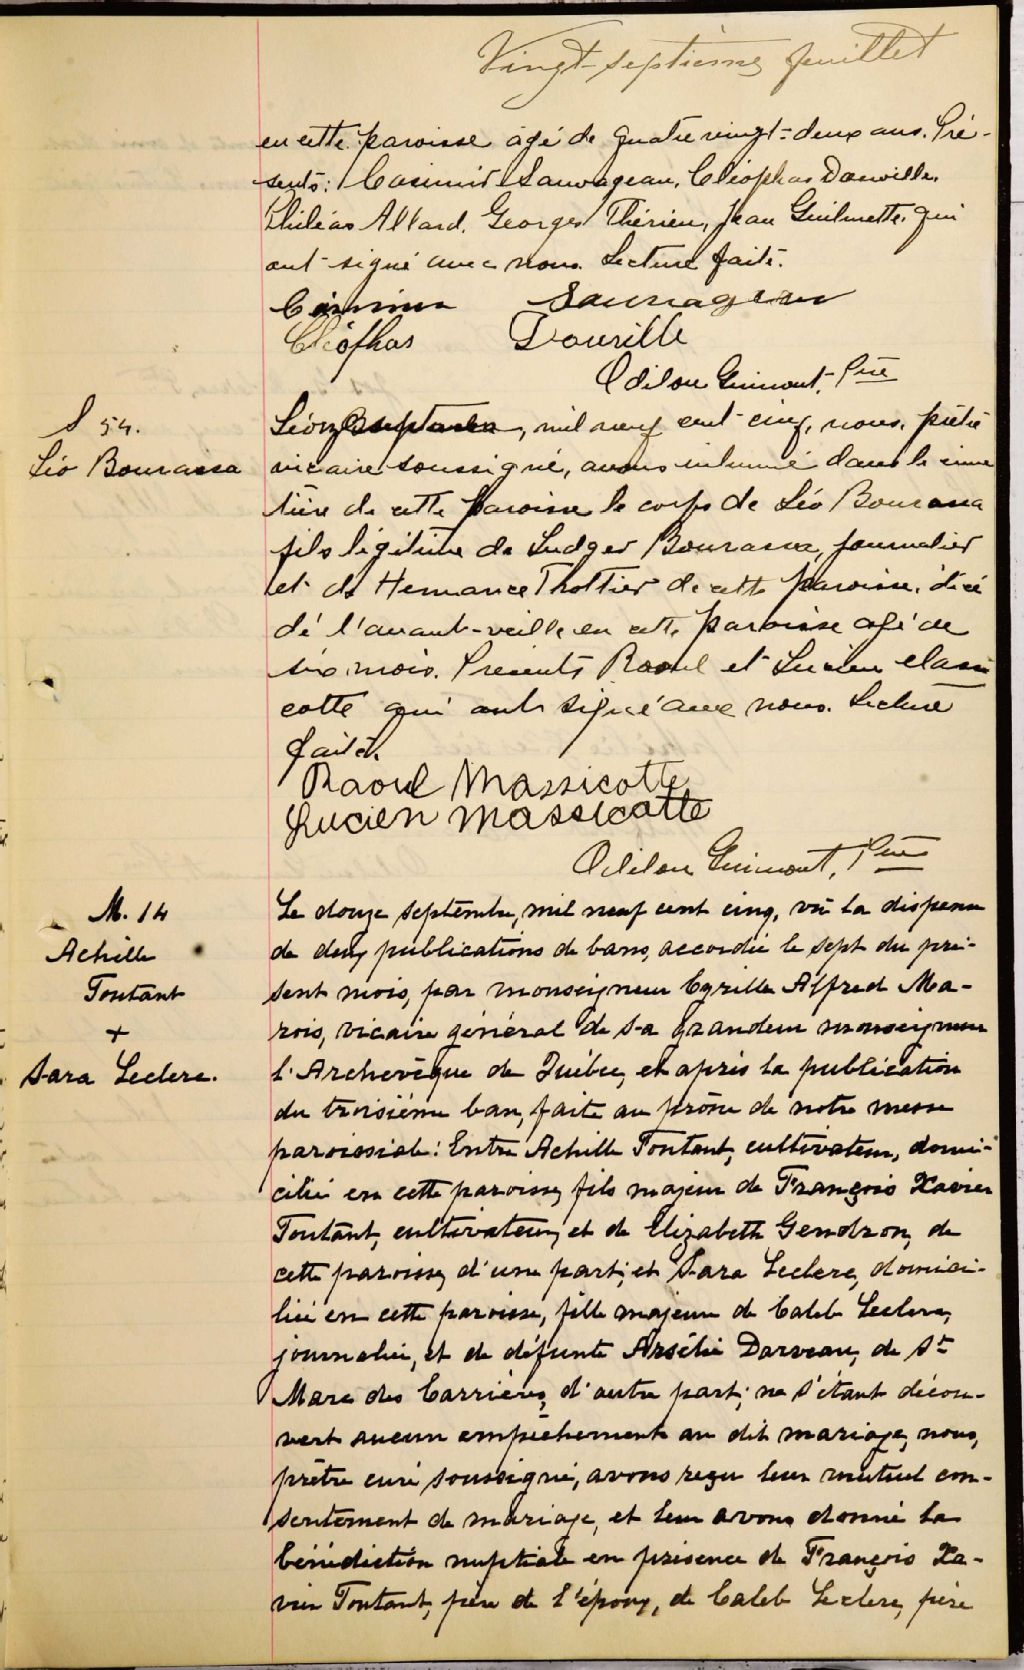 Vingt-septième feuillet
en cette paroisse âgé de quatre vingt-deux ans. Pré-
sents: Casimir Sauvageau, Cléophas Douville,
Philéas Allard, Georges Thérien, Jean Guilmette qui
ont signé avec nous. Lecture faite.
Casimir Sauvageau
Cléofhas Douville
Odilon Guimont, Ptre
S 54.
Léo Bourassa
Le onze septembre, mil neuf cent cinq, nous, prêtre
vicaire soussigné, avons inhumé dans le cime
tière de cette paroisse le corps de Léo Bourassa
fils légitime de Ludger Bourassa, journalier
et de Hermance Thottier de cette paroisse, décé
dé l'avant-veille en cette paroisse agé de
six mois. Présents Raoul et Lucien Massi
cotte qui ont signé avec nous. Lecture
faite.
Raoul Massicotte
Lucien Massicotte
Odilon Guimont, Ptre
M. 14
Achille
Toutant
+
Sara Leclerc.
Le douze septembre, mil neuf cent cinq, vu la dispense
de deux publications de bans, accordée le sept du pré-
sent mois, par monseigneur Cyrille Alfred Ma-
rois, vicaire général de sa grandeur monseigneur
l'Archevêque de Québec, et après la publication
du troisième ban, faite au prône de notre messe
paroissiale: Entre Achille Toutant, cultivateur, domi-
cilié en cette paroisse, fils majeur de François Xavier
Toutant, cultivateur, et de Elizabeth Gendron, de
cette paroisse, d'une part; et Sara Leclerc, domici-
liée en cette paroisse, fille majeure de Caleb Leclerc,
journalier, et de défunte Arsélie Darveau, de St
Marc des Carrières, d'autre part; ne s'étant décou-
vert aucun empêchement au dit mariage, nous,
prêtre curé soussigné, avons reçu leur mutuel con-
sentement de mariage, et leur avons donné la
bénédiction nuptiale en présence de François Xa-
vier Toutant, père de l'époux, de Caleb Leclerc, père